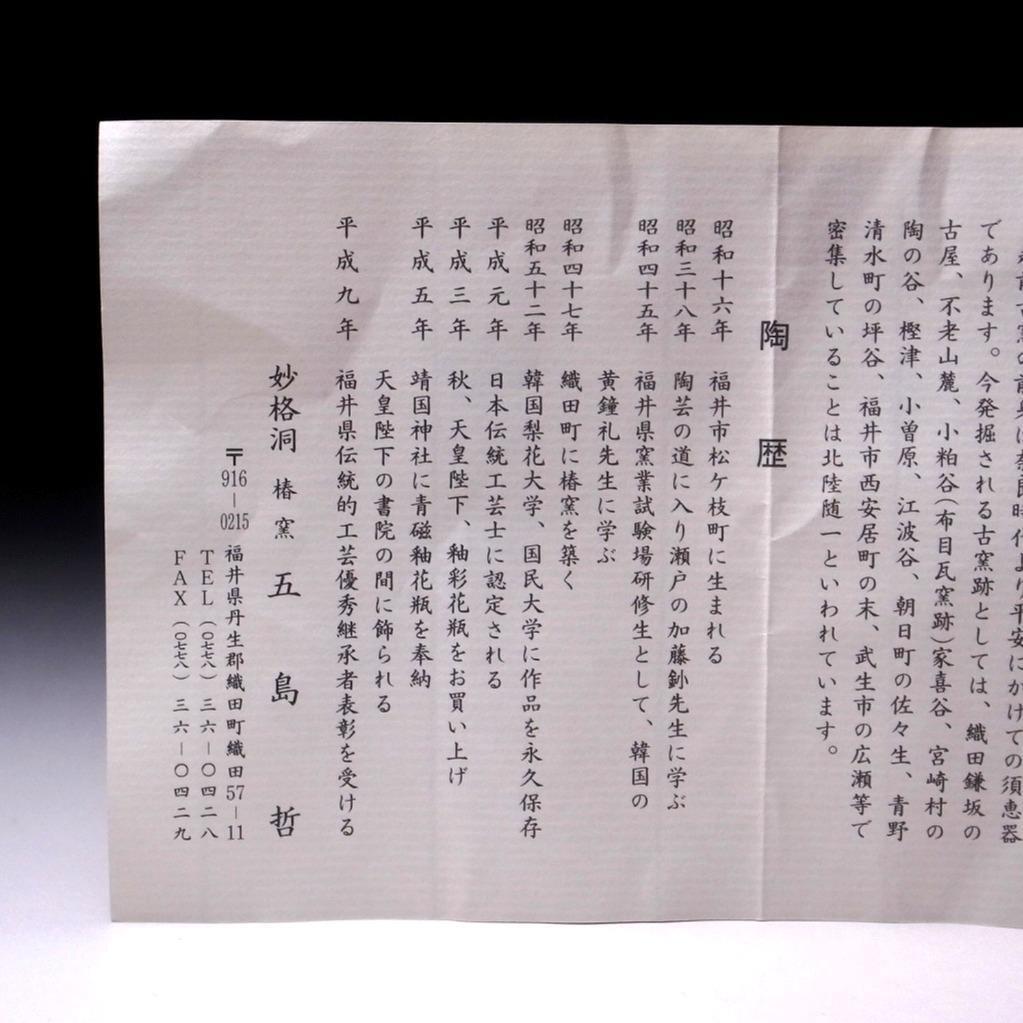 であります。今発掘される古窯跡としては、織田鎌坂の
古屋、不老山麓、小粕谷(布目瓦窯跡)家喜谷、宮崎村の
陶の谷、樫津、小曽原、江波谷、朝日町の佐々生、青野
清水町の坪谷、福井市西安居町の末、武生市の広瀬等で
密集していることは北陸随一といわれています。
陶歴
昭和十六年 福井市松ケ枝町に生まれる
昭和三十八年 陶芸の道に入り瀬戸の加藤釥先生に学ぶ
昭和四十五年 福井県窯業試験場研修生として、韓国の
黄鐘礼先生に学ぶ
昭和四十七年 織田町に椿窯を築く
昭和五十二年 韓国梨花大学、国民大学に作品を永久保存
平成元年 日本伝統工芸士に認定される
平成三年 秋、天皇陛下、釉彩花瓶をお買い上げ
平成五年 靖国神社に青磁釉花瓶を奉納
天皇陛下の書院の間に飾られる
平成九年 福井県伝統的工芸優秀継承者表彰を受ける
妙格洞 椿窯 五島哲
〒916-0215 福井県丹生郡織田町織田57-11
TEL(〇七七八)三六-〇四二八
FAX(〇七七八)三六-〇四二九